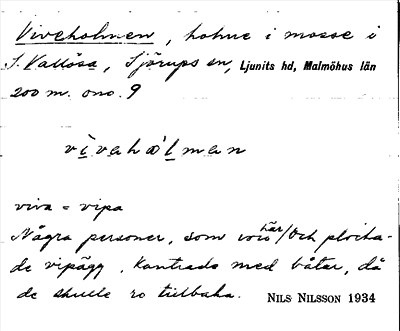 Viveholmen, holme i mosse i
S. Vallösa, Sjörups sn, Ljunits hd, Malmöhus län
200 m. ono. 9
vìvahål̀man
viva = vipa
Några personer, som voro här/och plocka-
de vipägg, kantrade med båtar, då
de skulle ro tillbaka. NILS NILSSON 1934